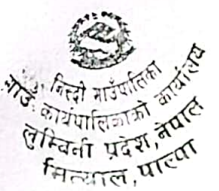 निस्दी गाउँपालिका
गाउँ कार्यपालिकाको कार्यालय
लुम्बिनी प्रदेश, नेपाल
मित्याल, पाल्पा